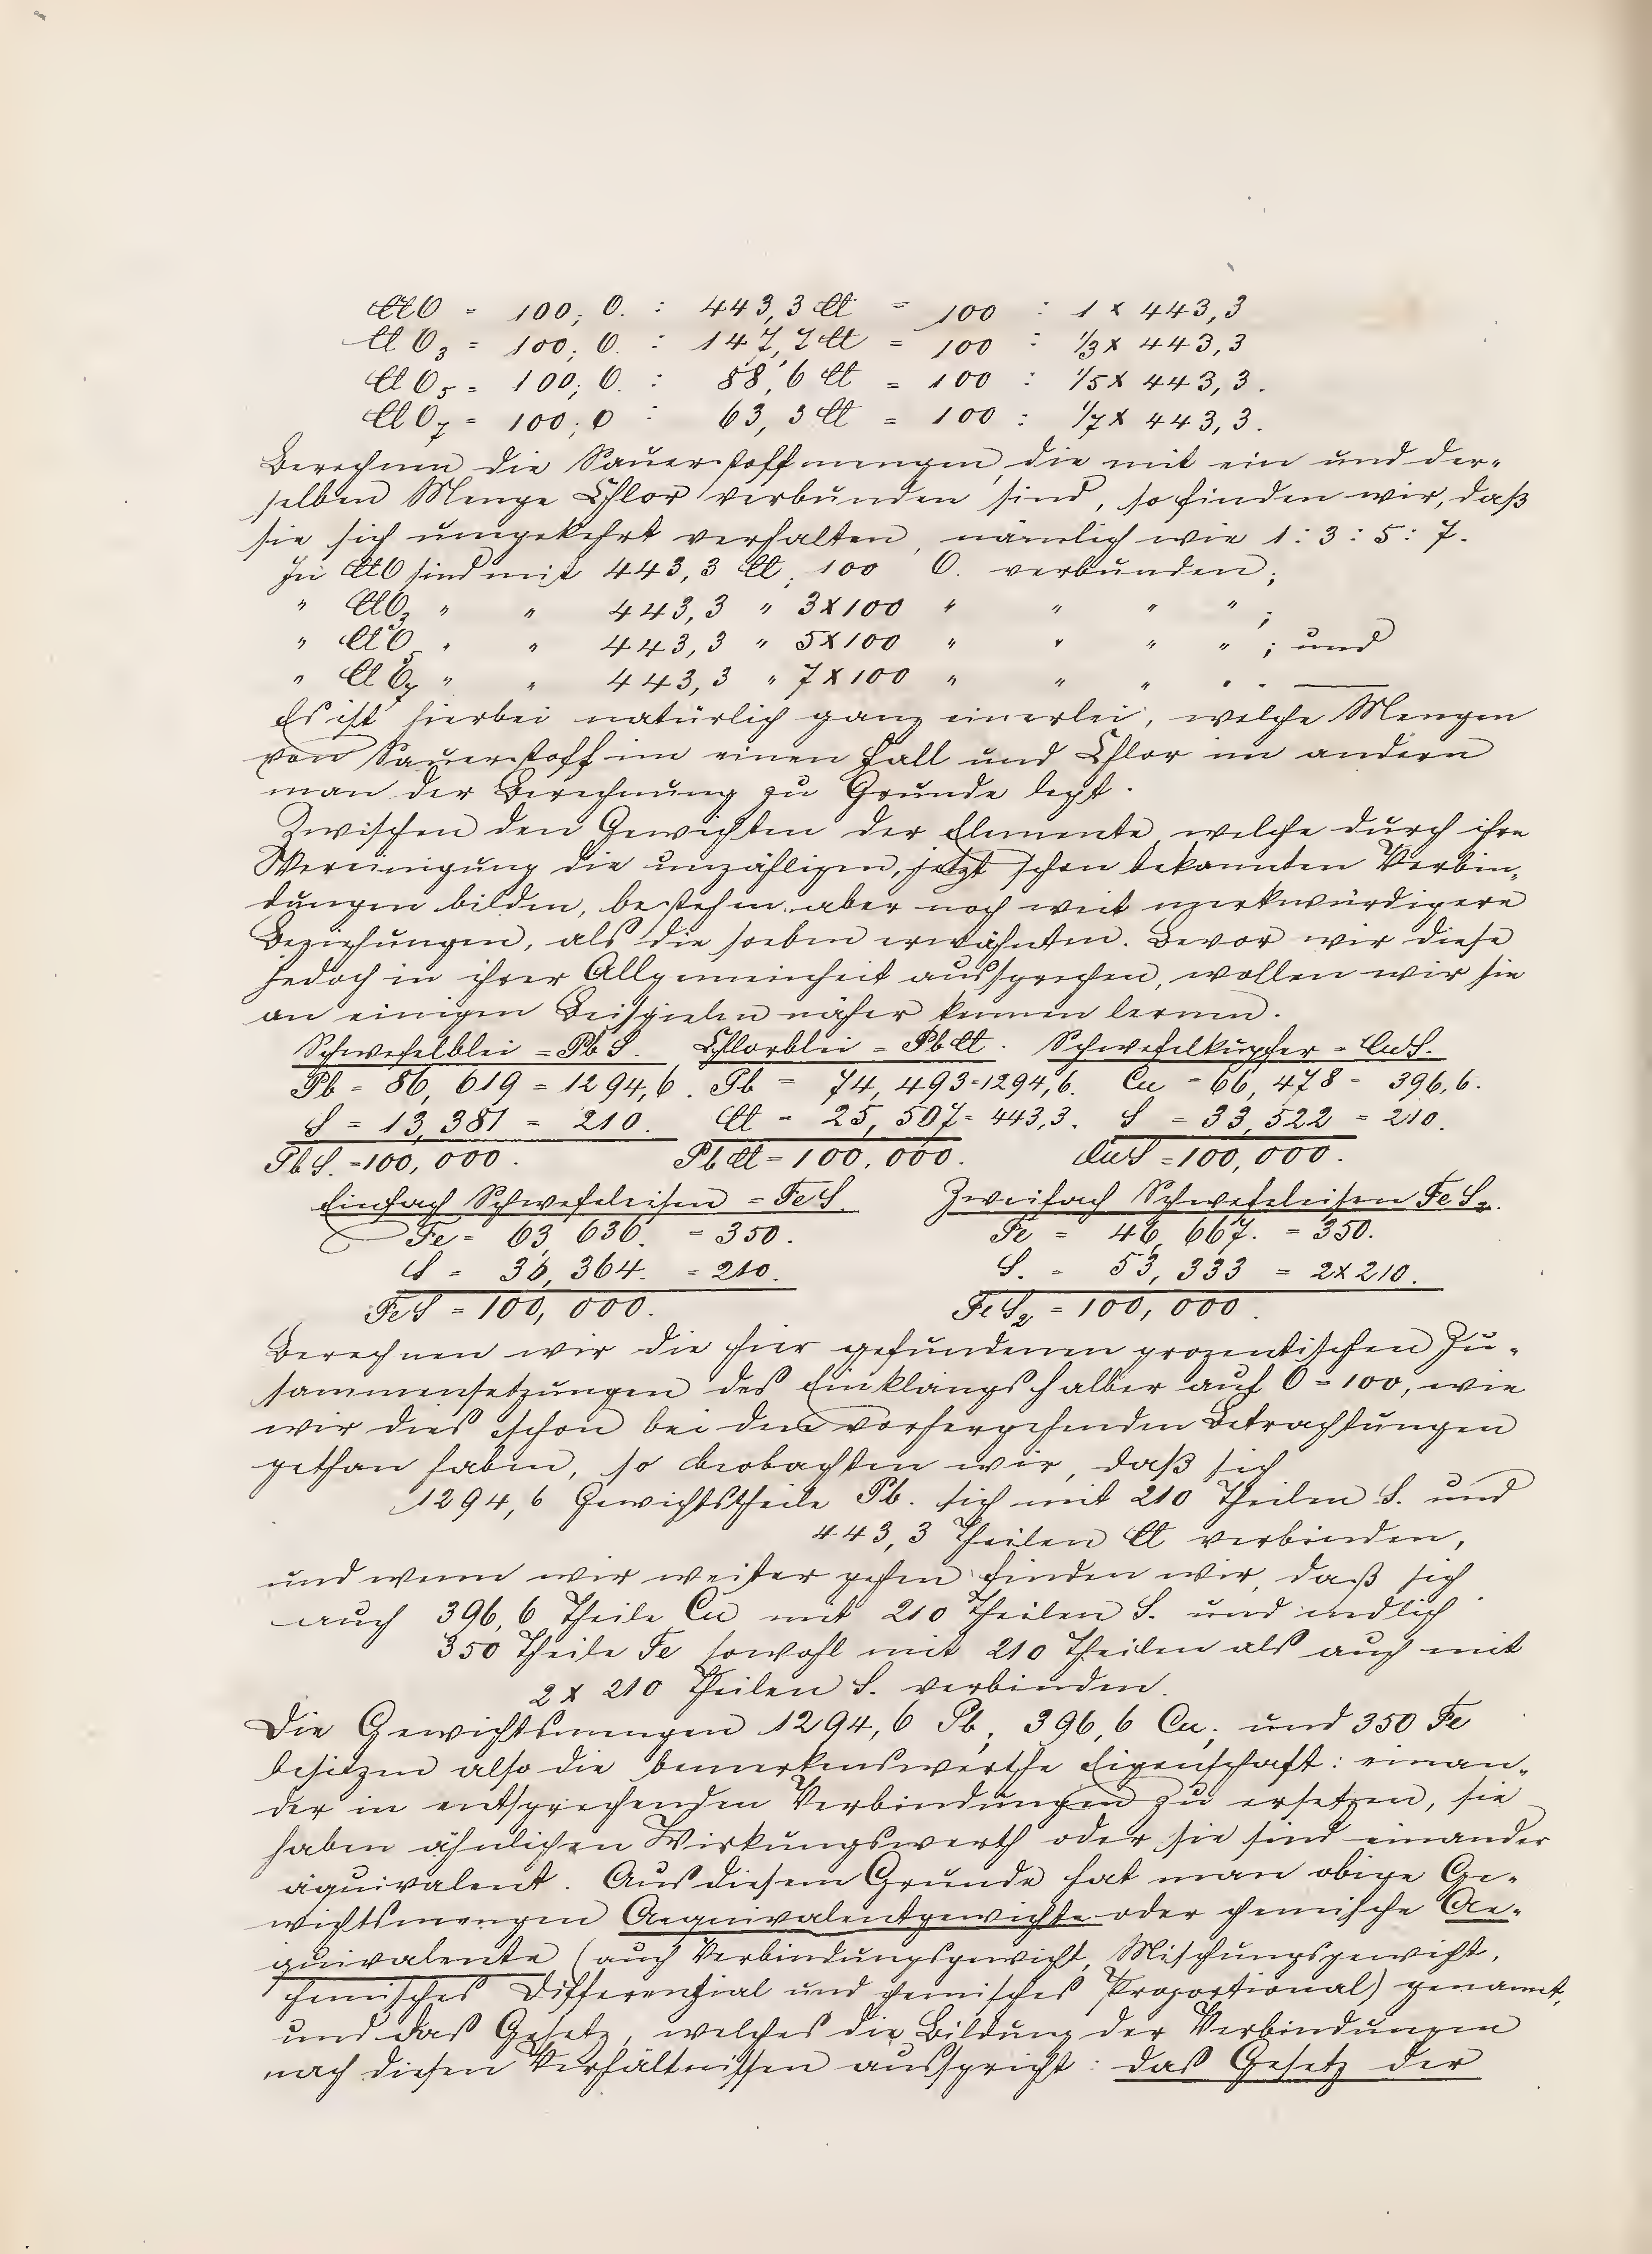 ClO = 100, O. : 443,3 Cl = 100 : 1 x 443,3
ClO3 = 100, O. : 147,7 Cl = 100 : 1/3 x 443,3
ClO5 = 100, O. : 88,6 Cl = 100 : 1/5 x 443,3.
ClO7 = 100, O : 63,3 Cl = 100 : 1/7 x 443,3.
Berechnen die Sauerstoffmengen, die mit ein und der-
selben Menge Chlor verbunden sind, so finden wir, daß
sie sich umgekehrt verhalten, nämlich wie 1 : 3 : 5 : 7.
In ClO sind mit 443,3 Cl, 100 O. verbunden;
" ClO3 " " 443,3 " 3x100 " " " " ;
" ClO5 " " 443,3 " 5x100 " " " " ; und
" ClO7 " " 443,3 " 7x100 " " " " . —
Es ist hierbei natürlich ganz einerlei, welche Mengen
von Sauerstoff im einen Fall und Chlor im andern
man der Berechnung zu Grunde legt.
Zwischen den Gewichten der Elemente, welche durch ihre
Vereinigung die unzähligen, jetzt schon bekannten Verbin-
dungen bilden, bestehen aber noch weit merkwürdigere
Beziehungen, als die soeben erwähnten. Bevor wir diese
jedoch in ihrer Allgemeinheit aussprechen, wollen wir sie
an einigen Beispielen näher kennen lernen.
Schwefelblei = PbS. Chlorblei = PbCl. Schwefelkupfer = CuS.
Pb = 86,619 = 1294,6. Pb = 74,493 = 1294,6. Cu = 66,478 = 396,6.
S = 13,381 = 210. Cl = 25,507 = 443,3. S = 33,522 = 210.
PbS. = 100,000. PbCl = 100,000. CuS = 100,000.
Einfach Schwefeleisen = FeS. Zweifach Schwefeleisen FeS2.
Fe = 63,636. = 350. Fe = 46,667. = 350.
S = 36,364. = 210. S. = 53,333 = 2x210.
FeS = 100,000. FeS2 = 100,000.
Berechnen wir die hier gefundenen prozentischen Zu-
sammensetzungen des Einklangs halber auf O = 100, wie
wir dies schon bei den vorhergehenden Betrachtungen
gethan haben, so beobachten wir, daß sich
1294,6 Gewichtstheile Pb. sich mit 210 Theilen S. und
443,3 Theilen Cl verbinden,
und wenn wir weiter gehen finden wir, daß sich
auch 396,6 Theile Cu mit 210 Theilen S. und endlich
350 Theile Fe sowohl mit 210 Theilen als auch mit
2 x 210 Theilen S. verbinden.
Die Gewichtsmengen 1294,6 Pb; 396,6 Cu; und 350 Fe
besitzen also die bemerkenswerthe Eigenschaft: einan-
der in entsprechenden Verbindungen zu ersetzen, sie
haben ähnlichen Wirkungswerth oder sie sind einander
äquivalent. Aus diesem Grunde hat man obige Ge-
wichtsmengen Aequivalentgewichte oder chemische Ae-
quivalente (auch Verbindungsgewicht, Mischungsgewicht,
chemisches Differenzial und chemisches Proportional) genannt,
und das Gesetz, welches die Bildung der Verbindungen
nach diesen Verhältnissen ausspricht: das Gesetz der